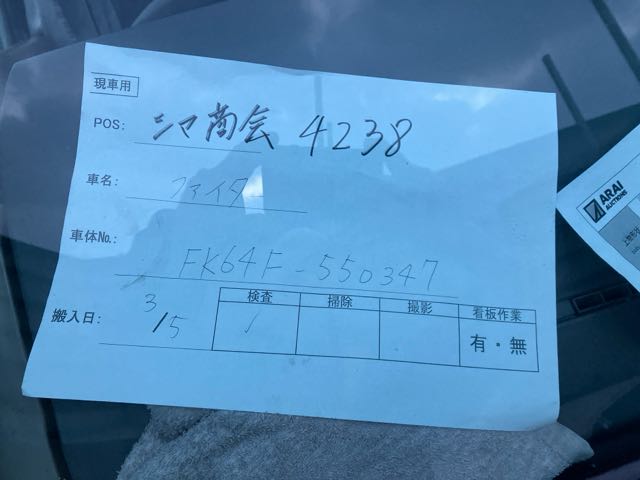 現車用
POS: シマ商会 4238
車名: ファイター
車体No.: FK64F-550347
搬入日: 3/5
検査 掃除 撮影 看板作業
✓ 有・無
ARAI
AUCTIONS